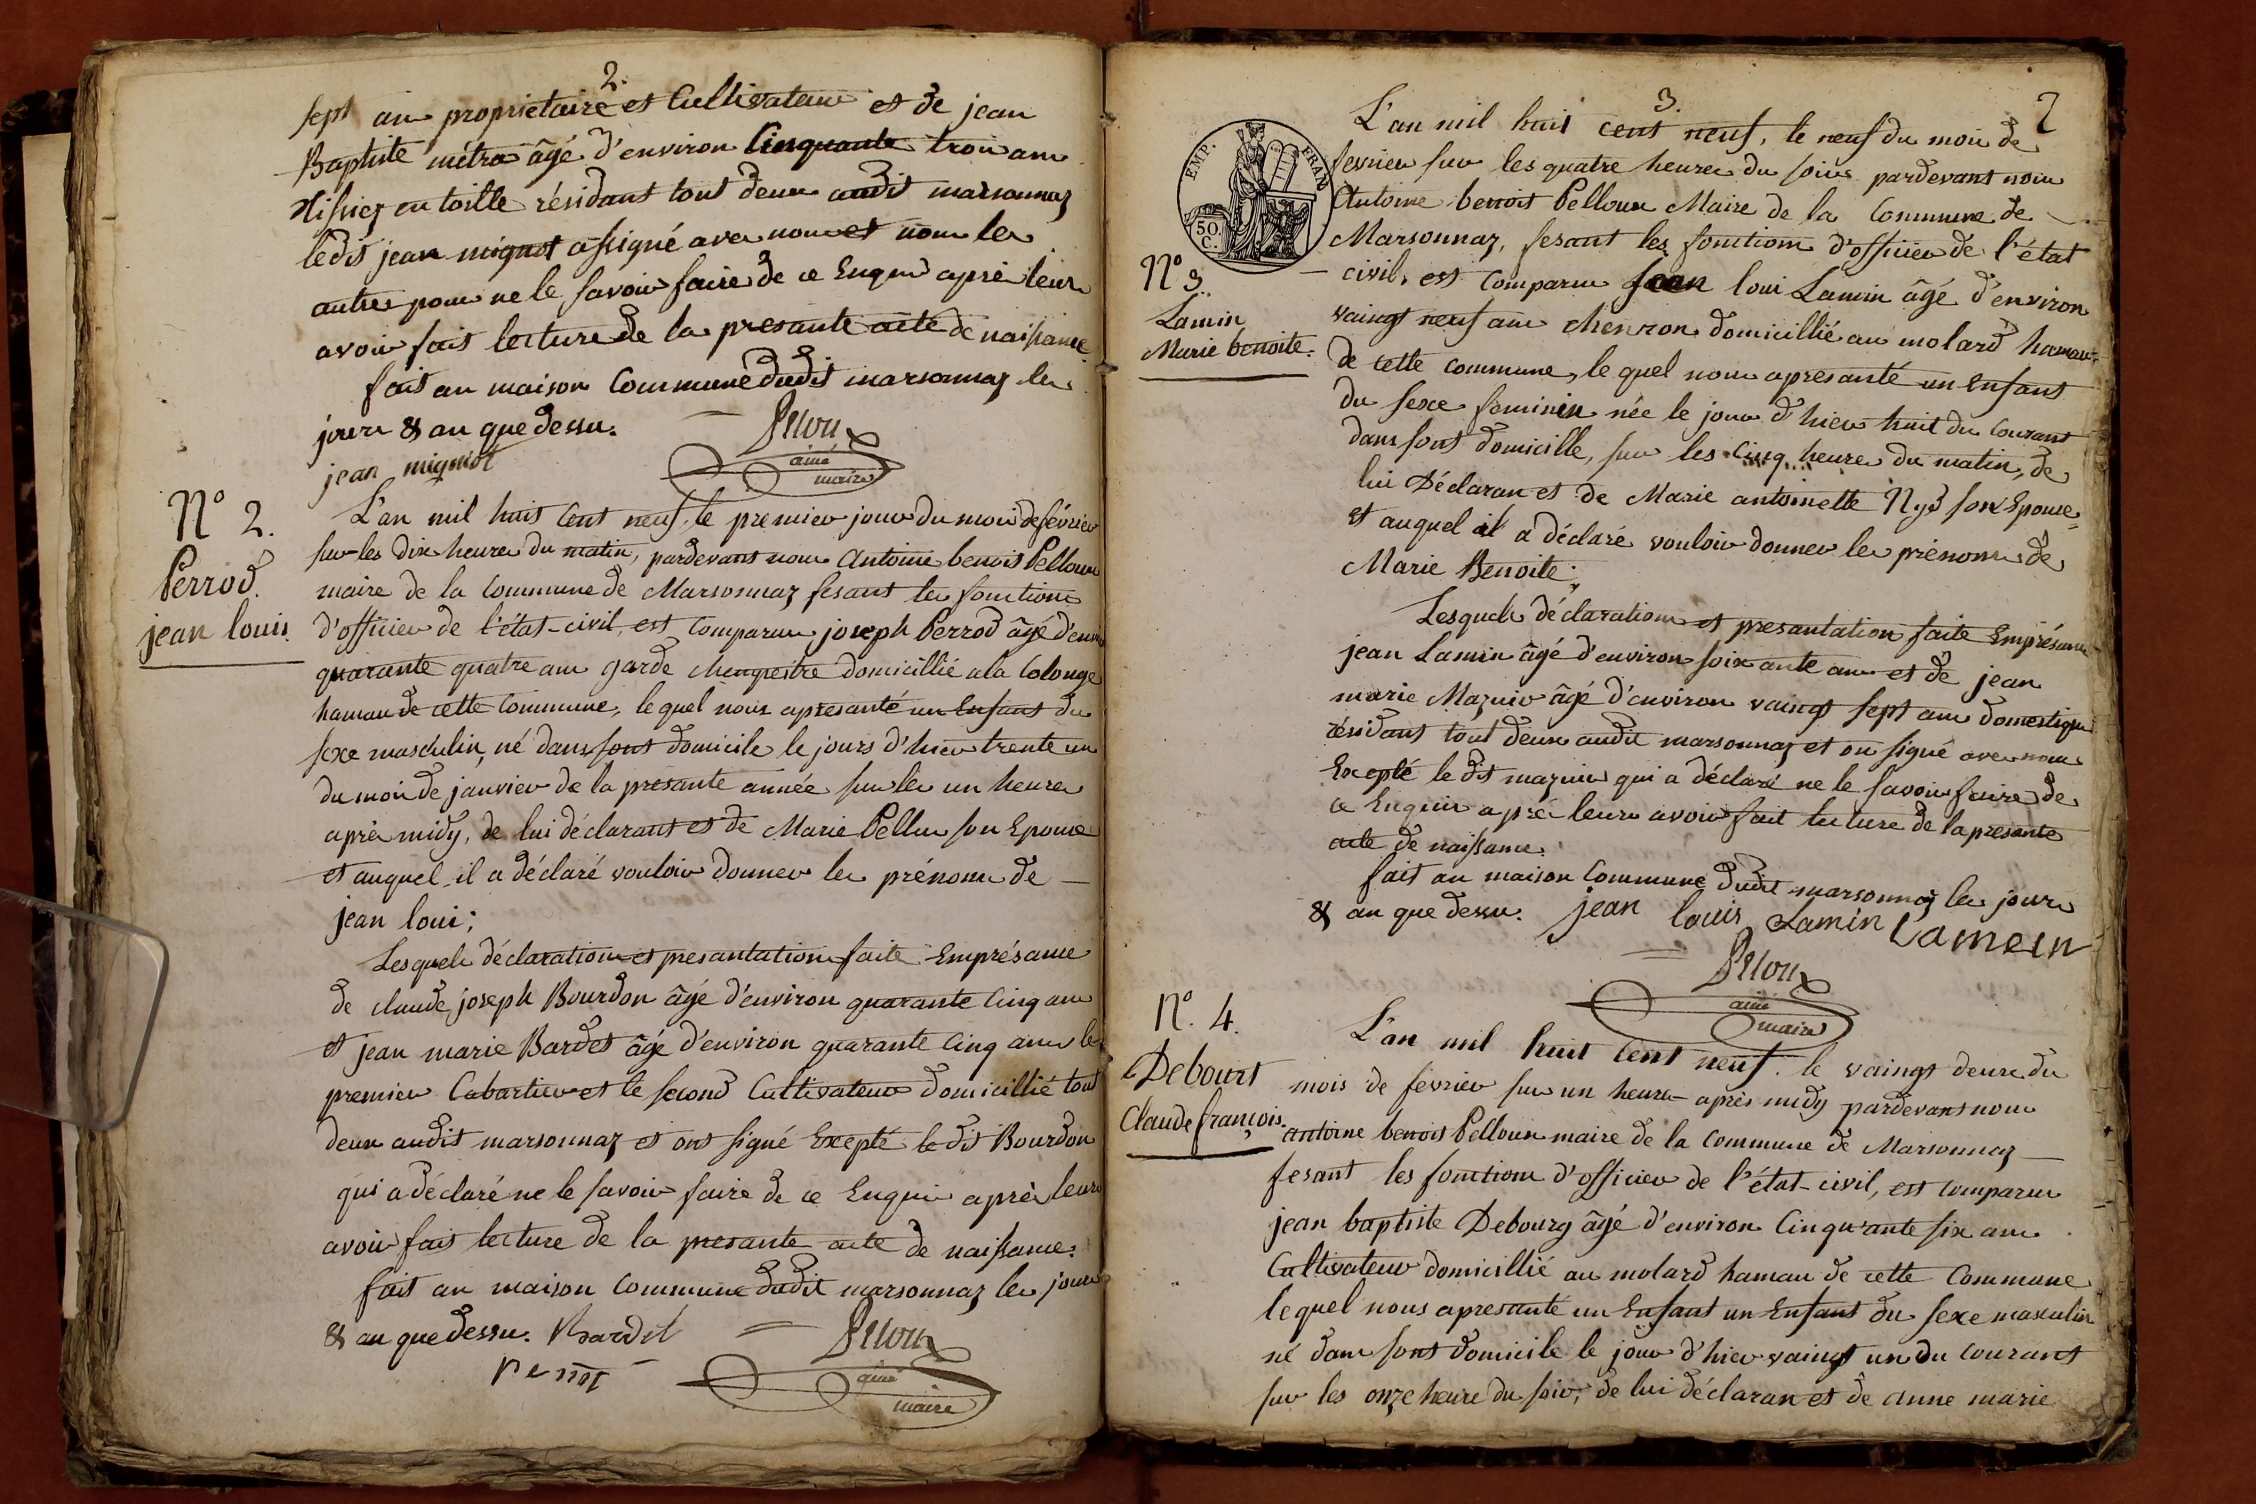 2.
sept ans proprietaire et Cultivateur et de jean
Baptiste métra âgé d'environ Cinquante trois ans
tissiez en toille résidant tout deux audit marsonnaz
ledit jean mignot assigné avec nous et nom les
autres pour ne le savoir faire de ce Enquis aprè leurs
avoir fait lecture de la presante acte de naissance
fait au maison Commune dudit marsonnaz les
jours & an que dessu.
jean mignot
Pelloux
ainé
maire
N° 2.
Perrod
jean louis.
L'an mil huit Cent neuf, le premier jour du mois de février
sur les dix heures du matin, pardevant nous Antoine benoit Pelloux
maire de la Commune de Marsonnaz fesant les fonctions
d'officier de l'état-civil, est Comparu joseph Perrod âgé d'environ
quarante quatre ans garde chempestre domicillié a la Colonge
hamau de cette Commune, le quel nous apresanté un Enfant du
sexe masculin, né dans sont domicile le jours d'hier trente un
du mois de janvier de la presante année sur les un heures
après midy, de lui déclarant et de Marie Pellu son Epouse
et auquel il a déclaré vouloir donner les prénoms de
jean loui;
Lesquels déclaration et presantation faite Emprésance
de claude joseph Bourdon âgé d'environ quarante Cinq ans
et jean marie Bardet âgé d'environ quarante Cinq ans le
premier Cabartier et le second Cultivateur domicillié tout
deux audit marsonnaz et ont signé Excepté le dit Bourdon
qui a déclaré ne le savoir faire de ce Enquis après leurs
avoir fait lecture de la presante acte de naissance.
fait au maison Commune dudit marsonnaz les jours
& an que dessu. Bardet
Perrot
Pelloux
ainé
maire
3.
2
EMP. FRAN.
50.
C.
L'an mil huit cent neuf, le neuf du mois de
fevrier sur les quatre heures du soir pardevant nous
Antoine benoit Pelloux Maire de la Commune de
Marsonnaz, fesant les fonctions d'officier de l'état
N° 3.
Lamin
Marie benoite.
civil, est Comparu Jean loui Lamin âgé d'environ
vaingt neuf ans chenron domicillié au molard hamau
de cette commune, le quel nous apresanté un Enfant
du sexe feminin née le jour d'hier huit du Courant
dans sont domicille, sur les Cinq heures du matin, de
lui Déclaran et de Marie antoinette Nyd son Epouse
et auquel il a déclaré vouloir donner les prénoms de
Marie Benoite;
Lesquels déclaration et presantation faite Emprésance
jean Lamin âgé d'environ soixante ans et de jean
marie Mazuir âgé d'environ vaingt sept ans domestique
résidant tout deux audit marsonnaz et on signé avec nous
Excepté le dit mazuir qui a déclaré ne le savoir faire de
ce Enquis apré leurs avoir fait lecture de la presante
acte de naissance.
fait au maison Commune dudit marsonnaz les jours
& an que dessu. jean louis Lamin Lamein
Pelloux
ainé
maire
N°. 4.
Debourt
Claude françois.
L'an mil huit Cent neuf. le vaingt deux du
mois de février sur un heure après midy pardevant nous
antoine benoit Pelloux maire de la Commune de Marsonnaz
fesant les fonctions d'officier de l'état-civil, est Comparu
jean baptiste Debourg âgé d'environ Cinqu'ante six ans
Cultivateur domicillié au molard hamau de cette Commune
lequel nous apresante un Enfant un Enfant du sexe masculin
né dans sont domicile le jour d'hier vaingt un du courant
sur les onze heure du soir, de lui déclaran et de anne marie